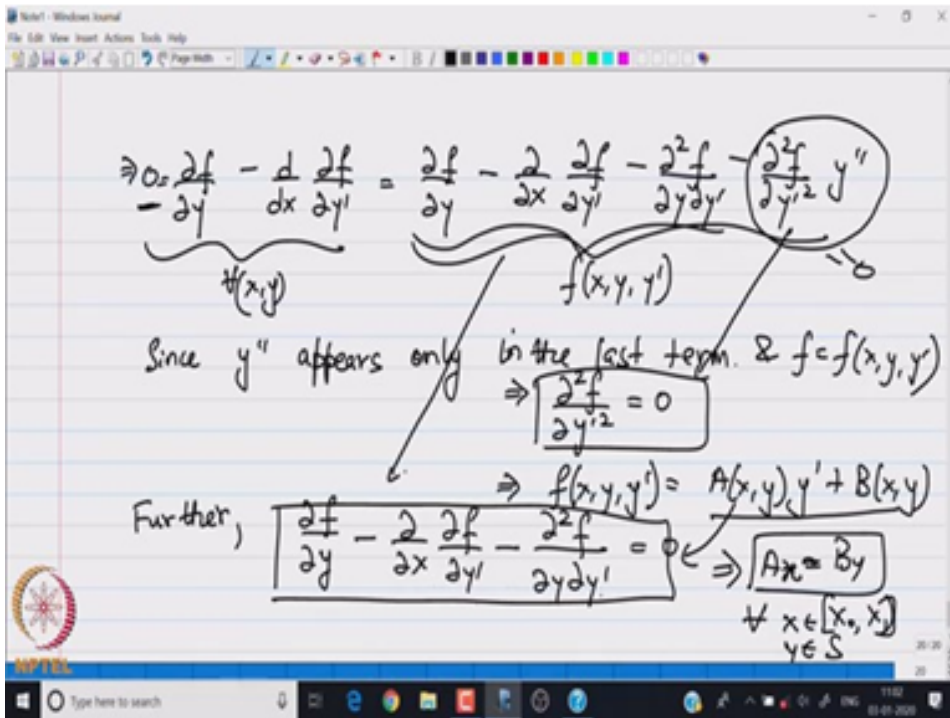 Note1 - Windows Journal
File Edit View Insert Actions Tools Help
Page Width
⇒ 0 = ∂f/∂y - d/dx ∂f/∂y' = ∂f/∂y - ∂/∂x ∂f/∂y' - ∂²f/∂y∂y' - ∂²f/∂y'² y''
∀(x,y) f(x, y, y') = 0
Since y'' appears only in the last term. & f = f(x, y, y')
⇒ ∂²f/∂y'² = 0
⇒ f(x, y, y') = A(x,y) y' + B(x,y)
Further, ∂f/∂y - ∂/∂x ∂f/∂y' - ∂²f/∂y∂y' = 0 ⇒ Ax = By
∀ x ∈ [x₀, x₁]
y ∈ S
NPTEL
20/20
20
Type here to search
ENG
11:02
03-01-2020